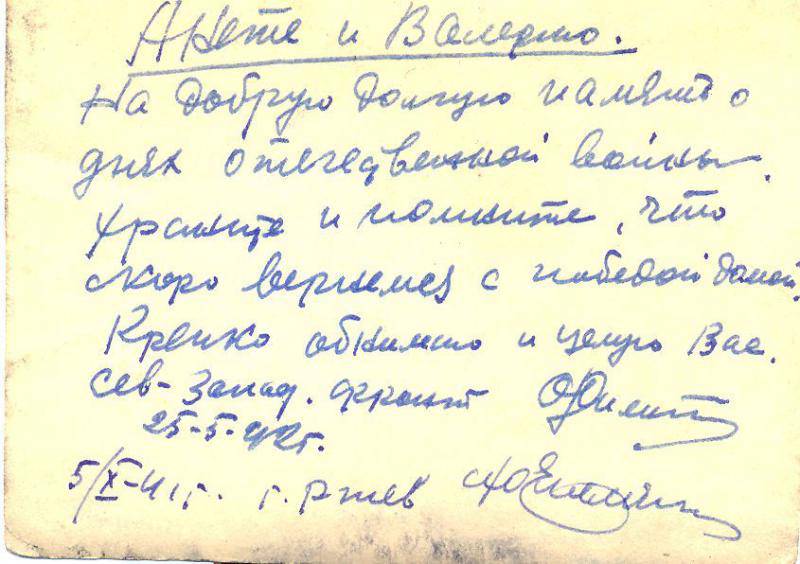 Анете и Валерию.
На добрую долгую память о
днях отечественной войны.
Храните и помните, что
скоро вернемся с победой домой.
Крепко обнимаю и целую Вас.
Сев-Запад. фронт
25-5-42г.
5/X-41г. г. Ржев